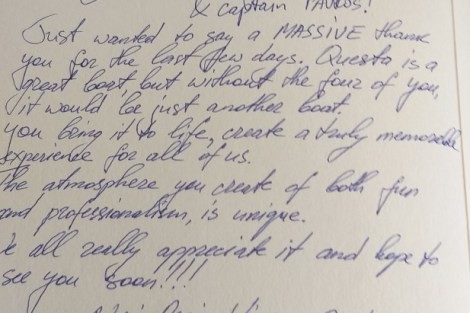 & captain
Just wanted to say a MASSIVE thank
you for the last few days. Questa is a
great boat but without the four of you,
it would be just another boat.
you bring it to life, create a truly memorable
experience for all of us.
The atmosphere you create of both fun
and professionalism, is unique.
We all really appreciate it and hope to
see you soon!!!!